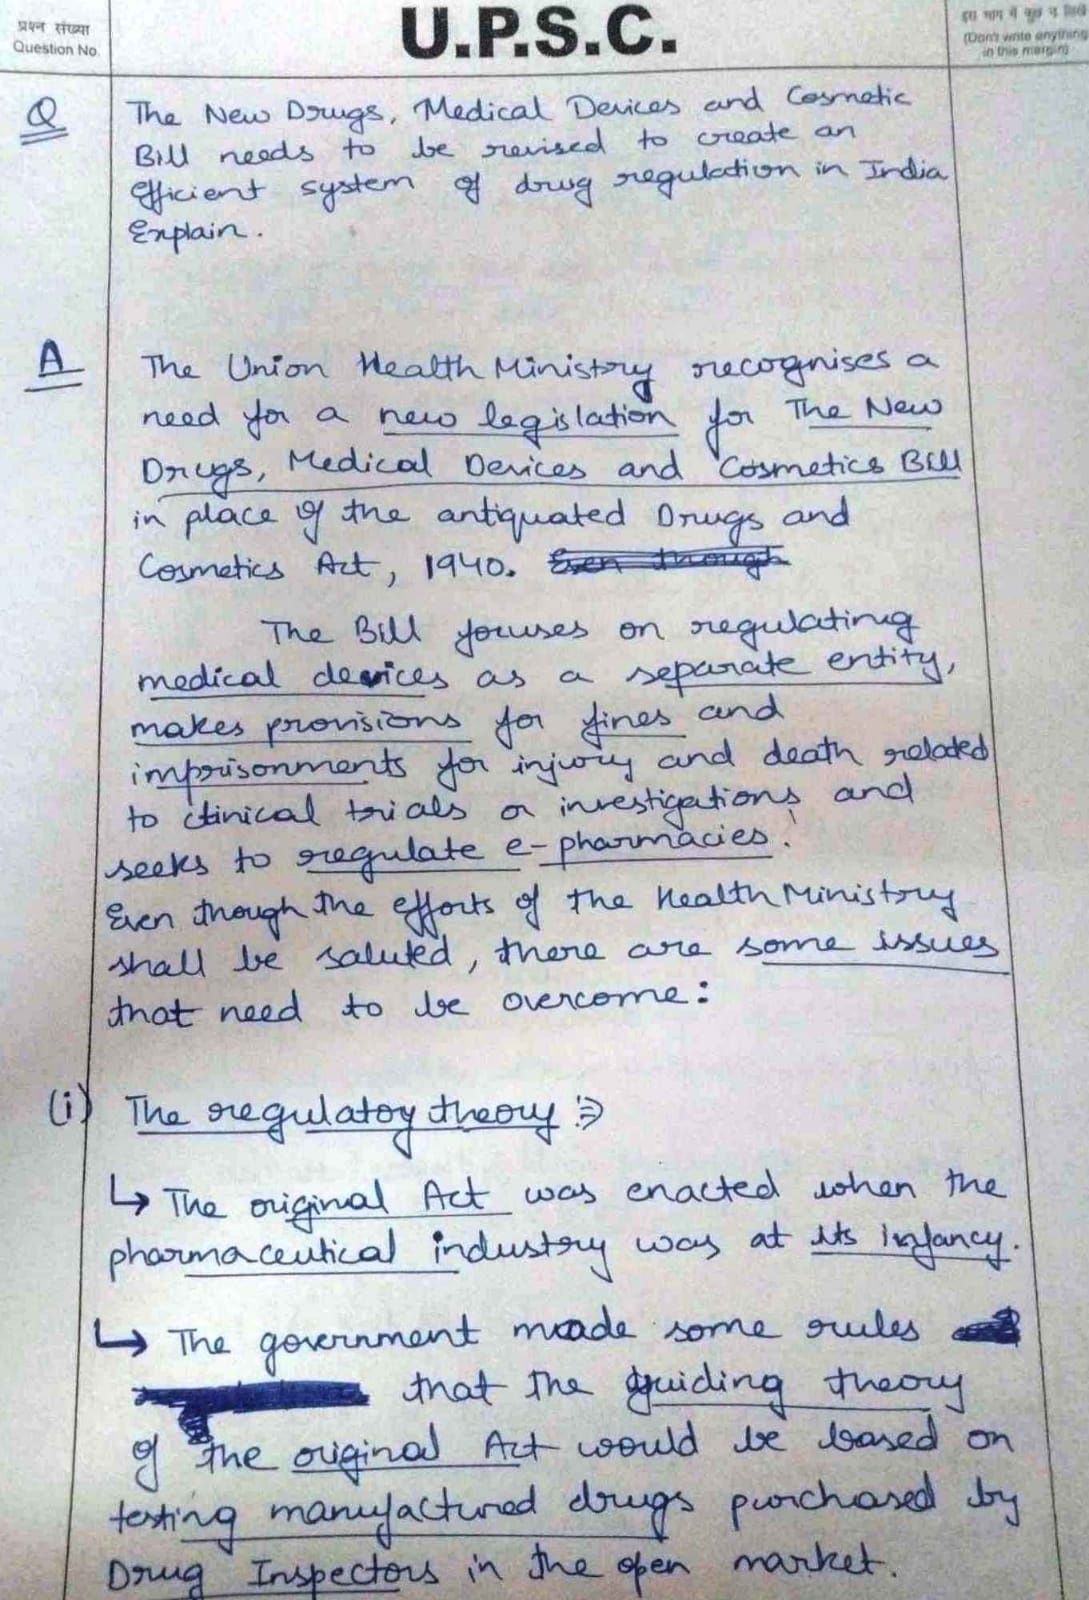 प्रश्न संख्या
Question No.
U.P.S.C.
इस भाग में कुछ न लिखें
(Don't write anything
in this margin)
Q
The New Drugs, Medical Devices and Cosmetic
Bill needs to be revised to create an
efficient system of drug regulation in India
Explain.
A
The Union Health Ministry recognises a
need for a new legislation for The New
Drugs, Medical Devices and Cosmetics Bill
in place of the antiquated Drugs and
Cosmetics Act, 1940. Even though
The Bill focuses on regulating
medical devices as a separate entity,
makes provisions for fines and
imprisonments for injury and death related
to clinical trials or investigations and
seeks to regulate e-pharmacies.
Even though the efforts of the Health Ministry
shall be saluted, there are some issues
that need to be overcome:
(i) The regulatoy theory :⇒
↳ The original Act was enacted when the
pharmaceutical industry was at its infancy.
↳ The government made some rules
that the guiding theory
of the original Act would be based on
testing manufactured drugs purchased by
Drug Inspectors in the open market.